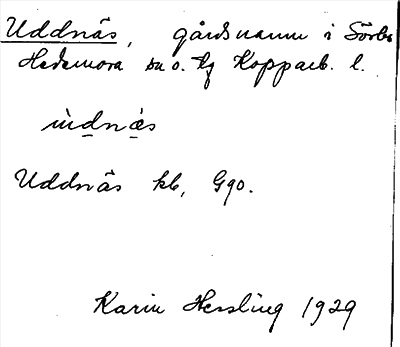 Uddnäs, gårdsnamn i Sörbo
Hedemora sn o. tg Kopparb. l.
ùdnäs
Uddnäs kb, G90.
Karin Hessling 1929